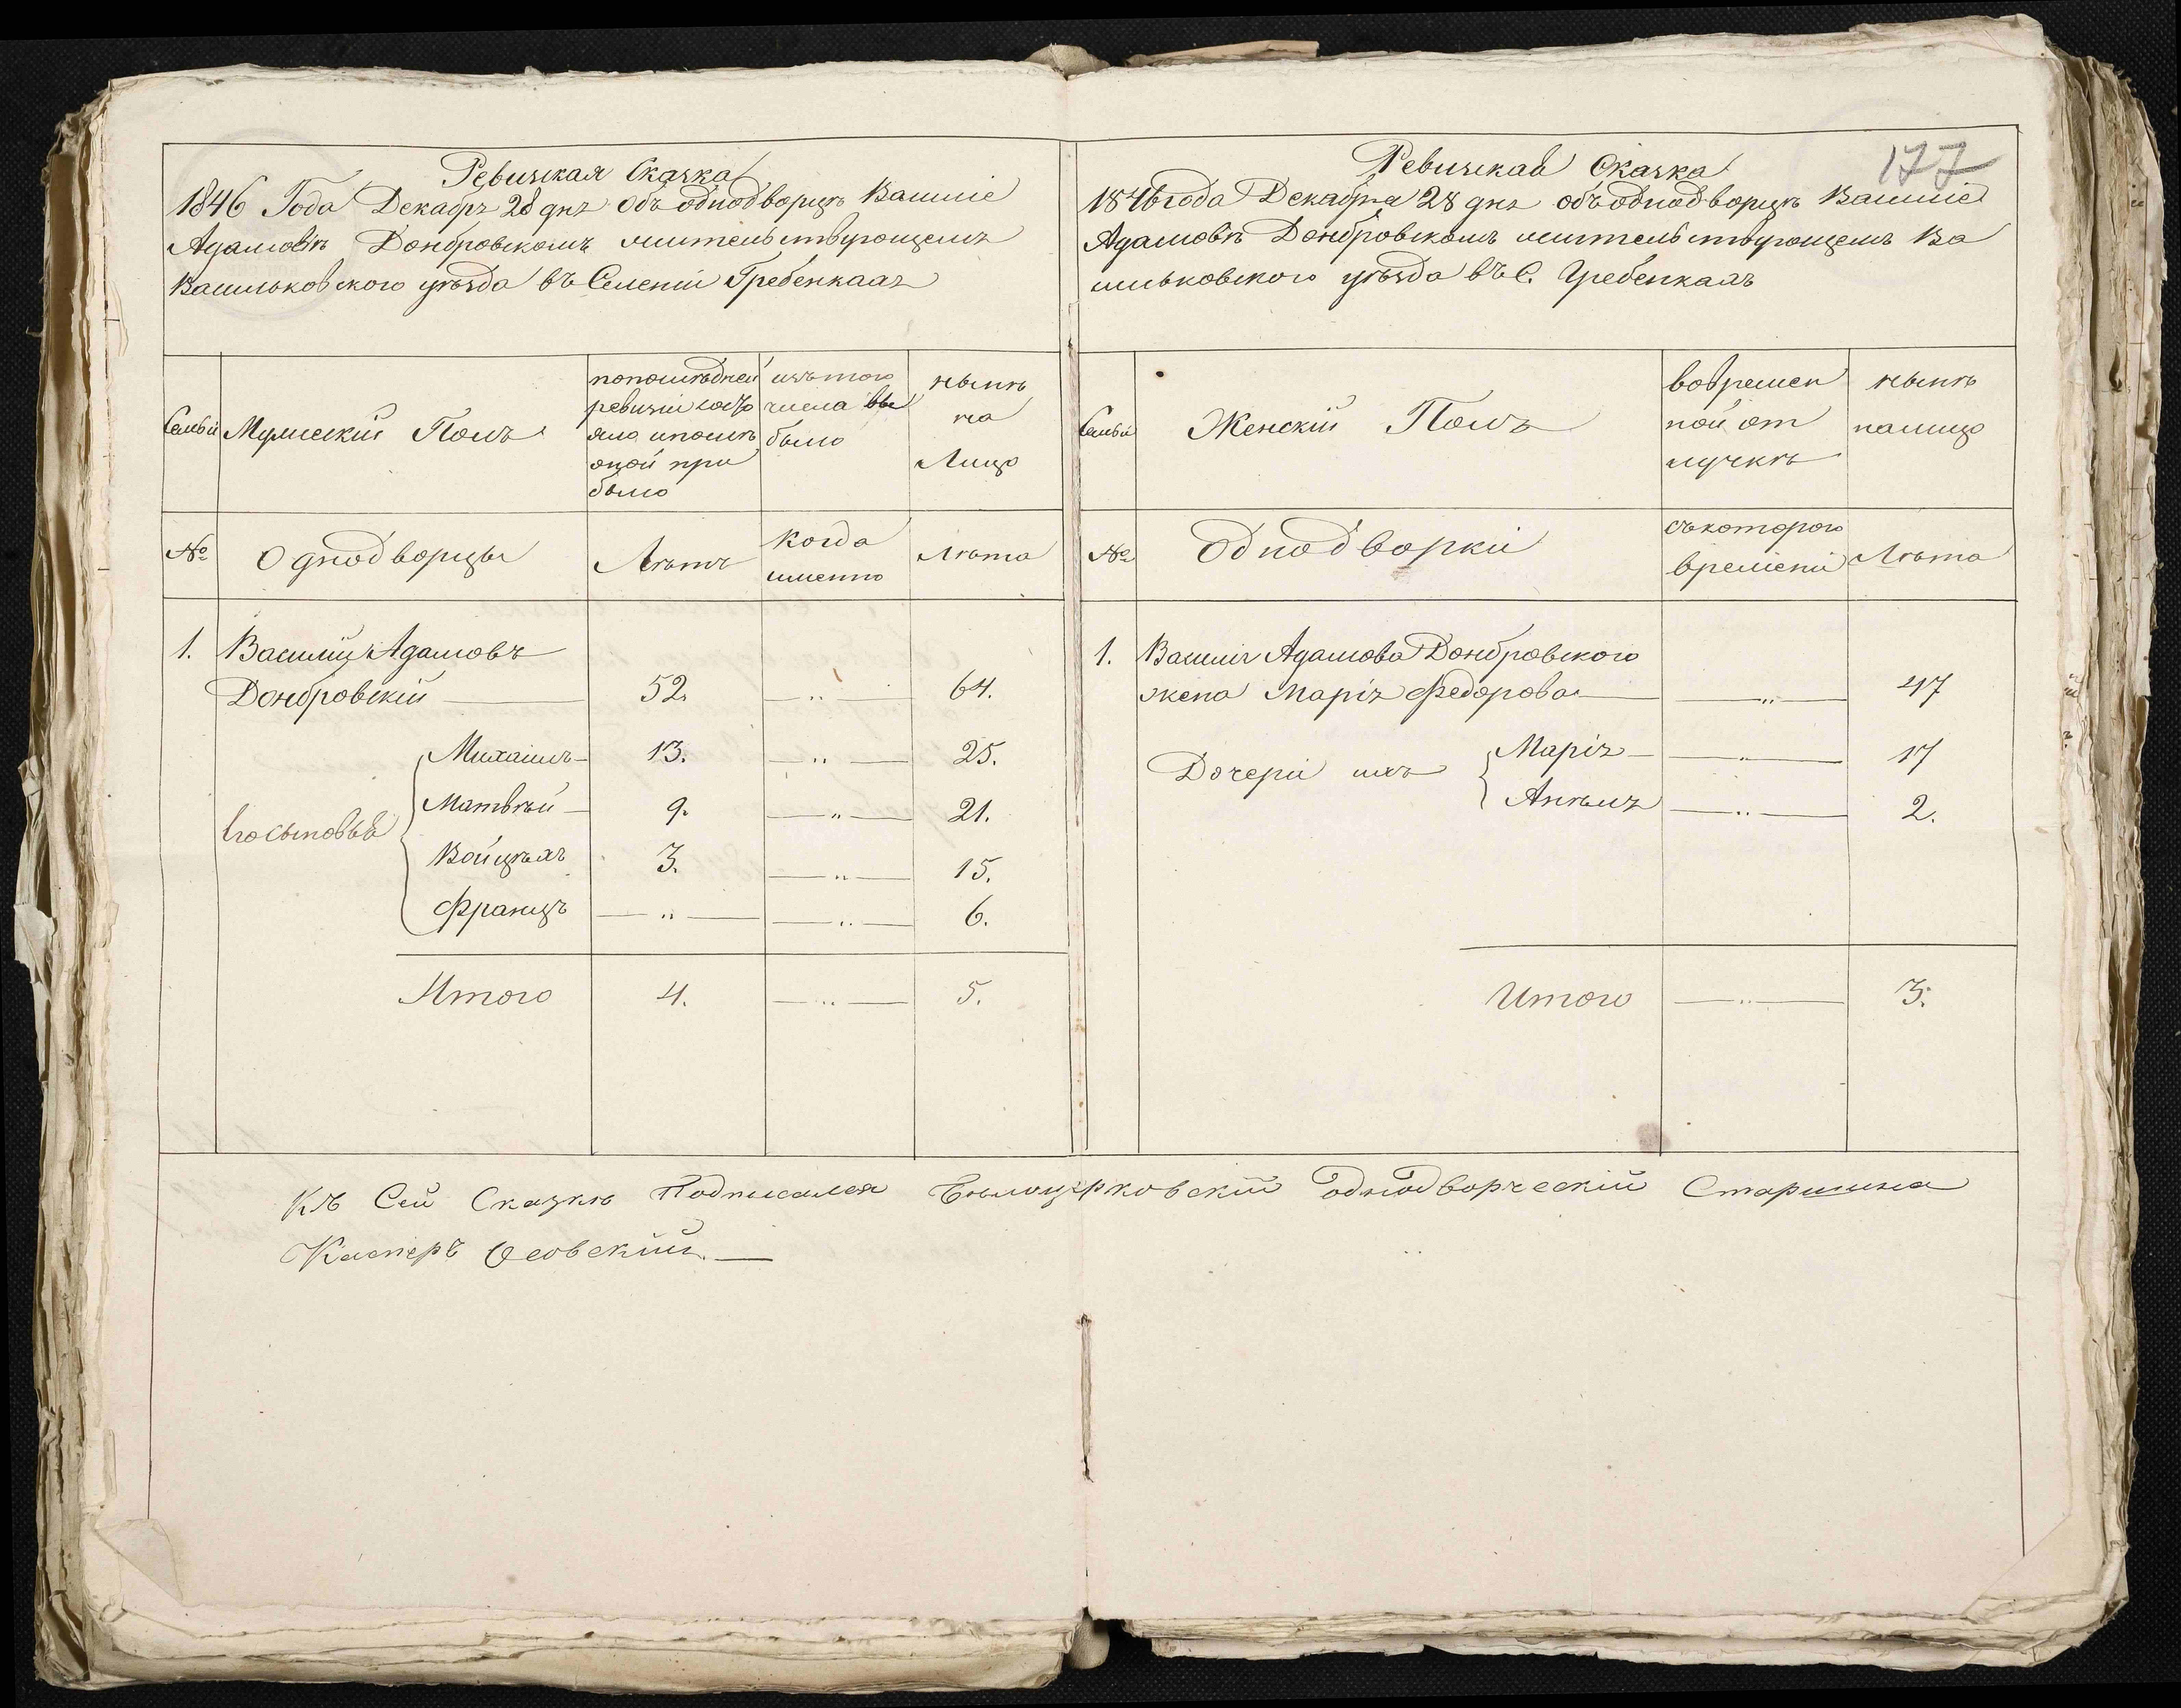 177
Ревизская Сказка
1846 Года Декабря 28 дня Объ однодворцѣ Василіе
Адамовѣ Домбровскомъ жительствующемъ
Васильковского уѣзда въ Селеніи Гребенкахъ
Семьи
Мужескій Полъ
попослѣдней
ревизіи состо
яло ипослѣ
оной при
было
изътого
числа вы
было
нынѣ
на
Лицо
№
Однодворцы
Лѣтъ
Когда
именно
Лѣта
1. Василій Адамовъ
Домбровскій 52. " 64.
Михаилъ 13. " 25.
Матвѣй 9. " 21.
Его сыновья
Войцѣхъ 3. " 15.
Францъ " " 6.
Итого 4. " 5.
Ревизская Сказка
1846 года Декабря 28 дня объ однодворцѣ Василіе
Адамовѣ Домбровскомъ жительствующемъ Ва
сильковского уѣзда въ С. Гребенкахъ
Семьи
Женскій Полъ
вовремен
ной от
лучкѣ
нынѣ
налицо
№
Однодворки
съкоторого
времени
Лѣта
1. Василія Адамова Домбровского
жена Марія Федорова " 47
Марія " 17
Дочери ихъ
Анѣля " 2.
Итого " 3.
Къ Сей Сказкѣ Подписался Бѣлоцерковскій однодворческій Старшина
Касперъ Осовскій.